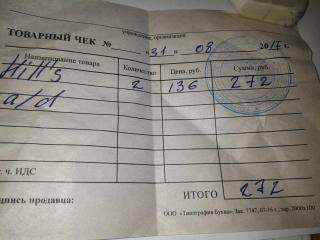 учреждение, организация
ТОВАРНЫЙ ЧЕК №
"31 " 08 2017 г.
Наименование товара Количество Цена, руб. Сумма, руб.
Hill's 2 136 272
a/d
т. ч. НДС
ИТОГО 272
дпись продавца:
ООО «Типография Буква», Зак. 7747, 07-16 г., тир. 2000х100